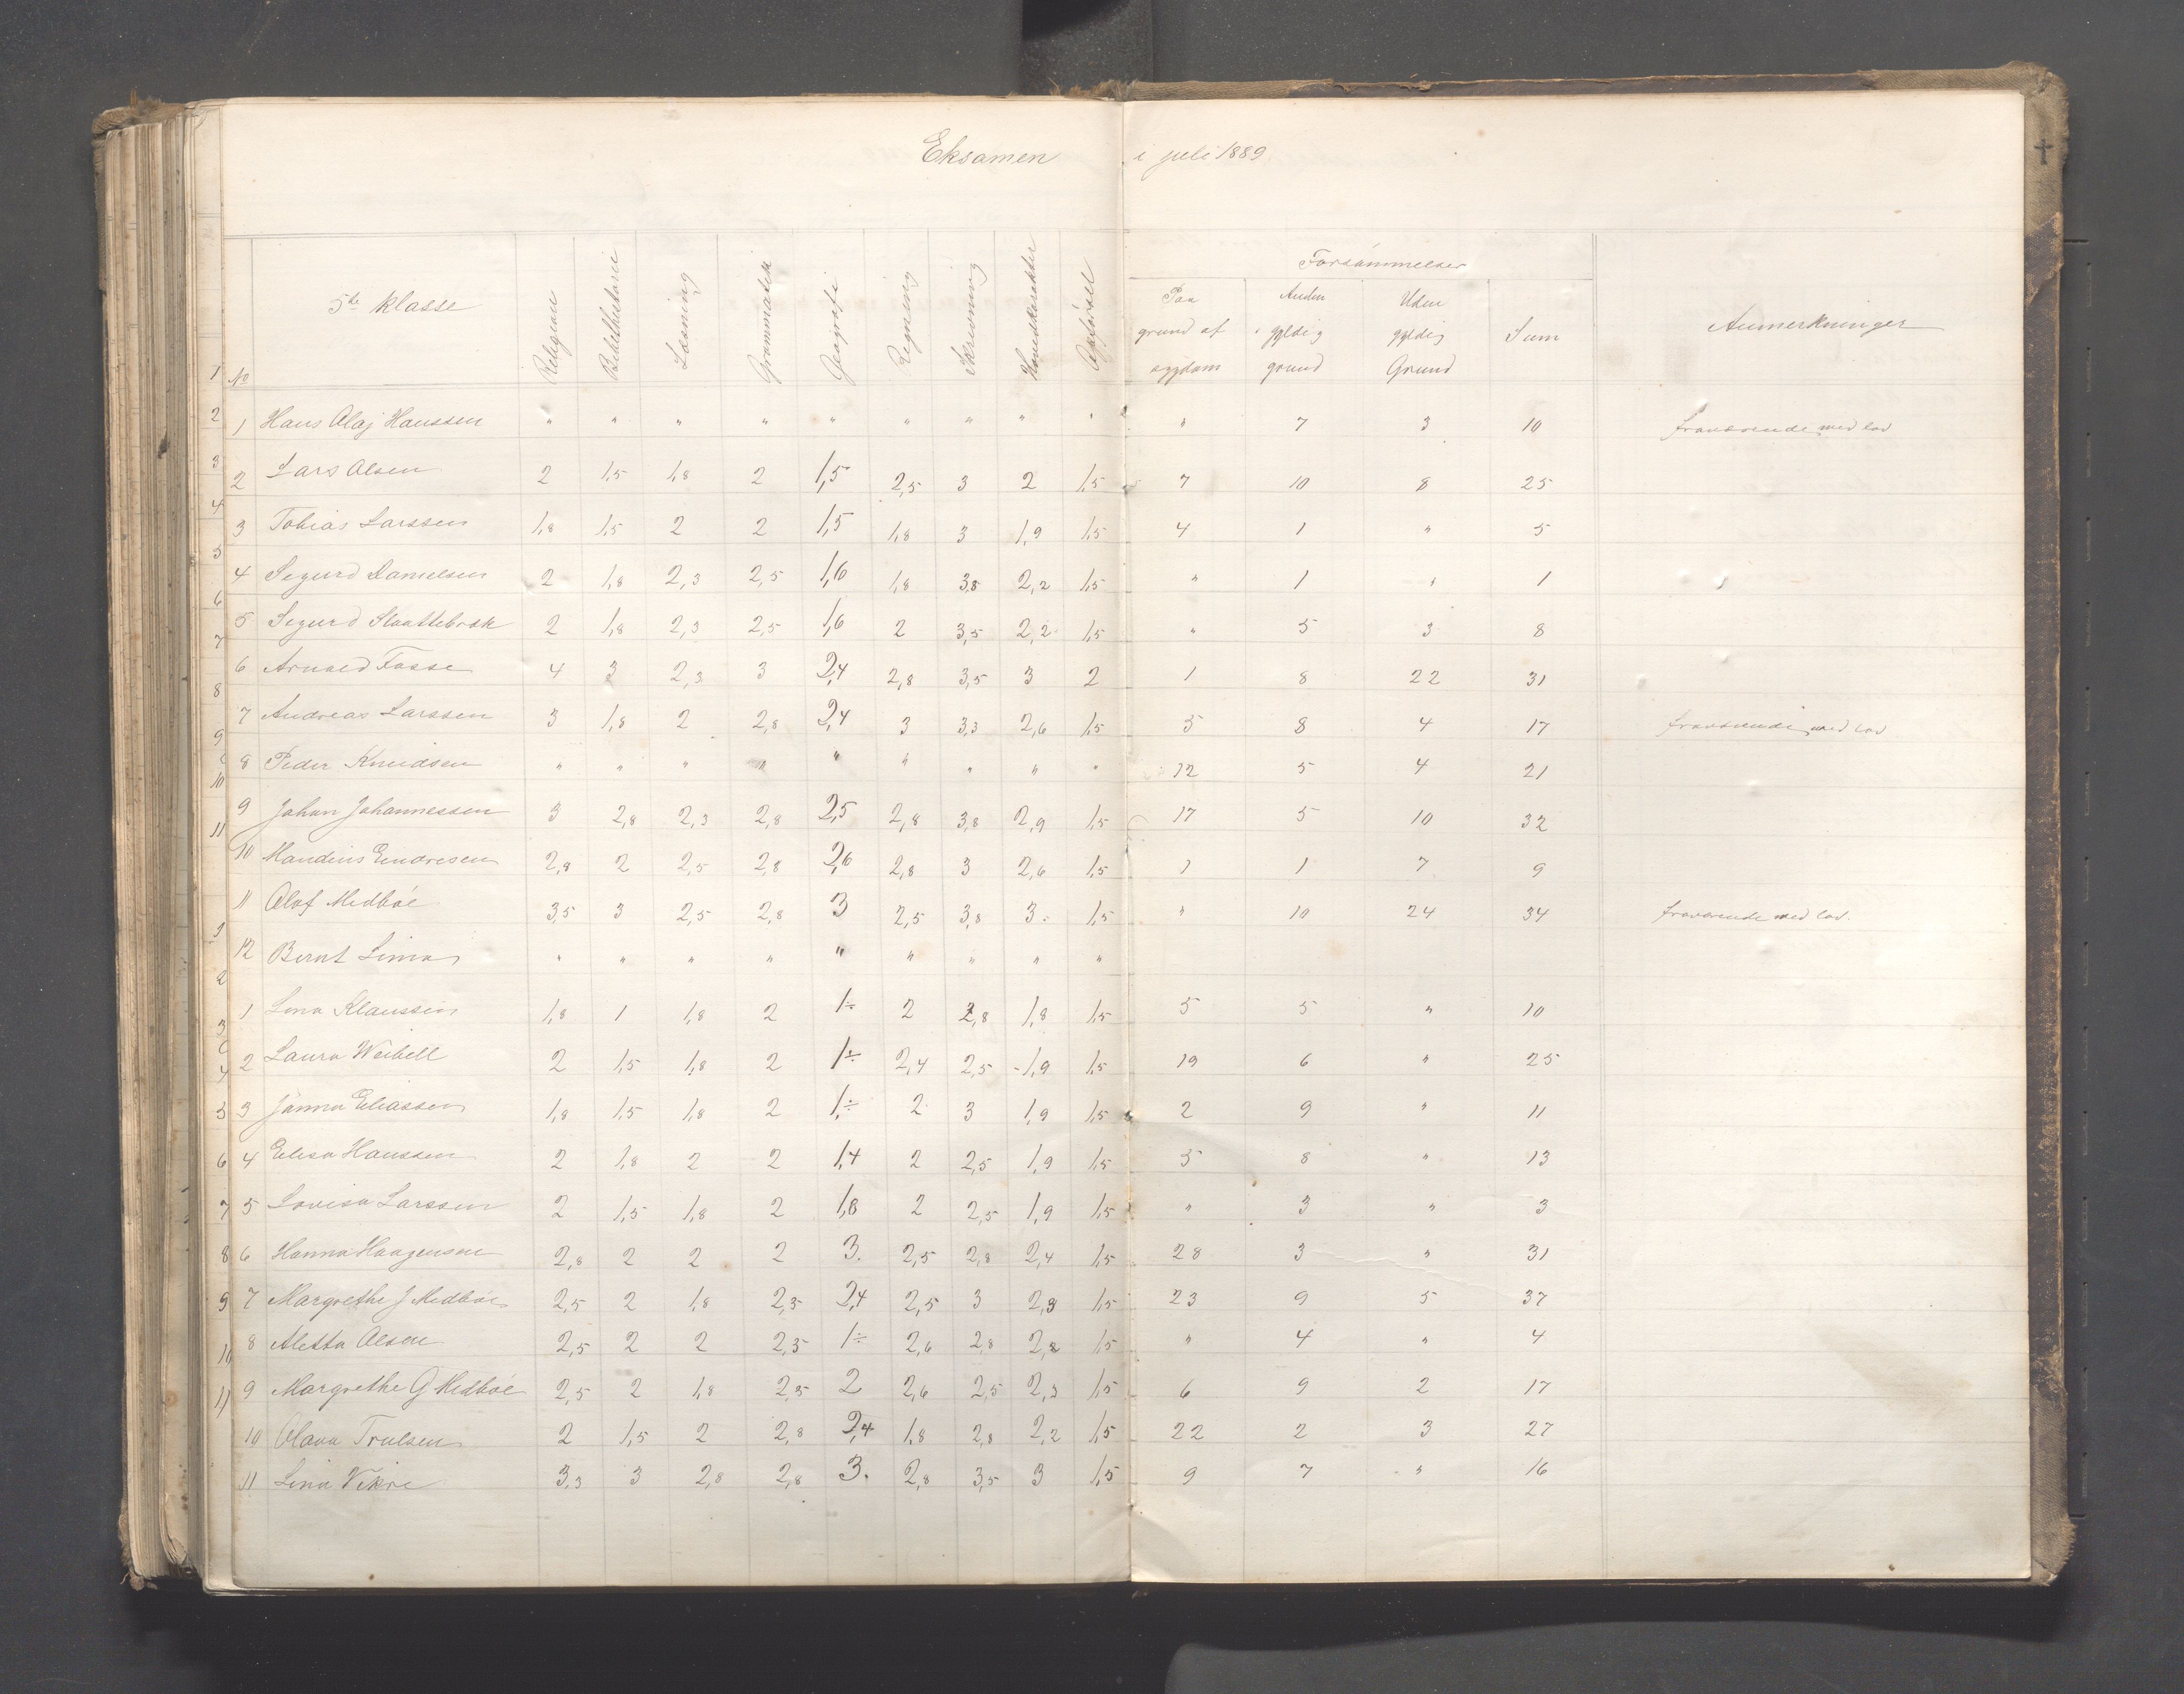 Eksamen i juli 1889
5te klasse
Forsömmelser
No Religion Bibelhistorie Læsning Grammatik Geografi Regning Skrivning Hovedkarakter Opförsel Paa grund af sygdom Anden gyldig grund Uden gyldig Grund Sum Anmerkninger
1 Hans Olaj Hanssen " " " " " " " " " " 7 3 10 fraværende med lov
2 Lars Olsen 2 1,5 1,8 2 1,5 2,5 3 2 1,5 7 10 8 25
3 Tobias Larssen 1,8 1,5 2 2 1,5 1,8 3 1,9 1,5 4 1 " 5
4 Sigurd Danielsen 2 1,8 2,3 2,5 1,6 1,8 3,8 2,2 1,5 " 1 " 1
5 Sigurd Slaattebrok 2 1,8 2,3 2,5 1,6 2 3,5 2,2 1,5 " 5 3 8
6 Arnold Fosse 4 3 2,3 3 2,4 2,8 3,5 3 2 1 8 22 31
7 Andreas Larssen 3 1,8 2 2,8 2,4 3 3,3 2,6 1,5 5 8 4 17 fraværende med lov
8 Peder Knudsen " " " " " " " " " 12 5 4 21
9 Johan Johannessen 3 2,8 2,3 2,8 2,5 2,8 3,8 2,9 1,5 17 5 10 32
10 Mandius Endresen 2,8 2 2,5 2,8 2,6 2,8 3 2,6 1,5 1 1 7 9
11 Olaf Medböe 3,5 3 2,5 2,8 3 2,5 3,8 3 1,5 " 10 24 34 fraværende med lov.
12 Bernt Lima " " " " " " " " "
1 Lina Klaussen 1,8 1 1,8 2 1÷ 2 2,8 1,8 1,5 5 5 " 10
2 Laura Weibell 2 1,5 1,8 2 1÷ 2,4 2,5 1,9 1,5 19 6 " 25
3 Janna Eliassen 1,8 1,5 1,8 2 1÷ 2 3 1,9 1,5 2 9 " 11
4 Elisa Hanssen 2 1,8 2 2 1,4 2 2,5 1,9 1,5 5 8 " 13
5 Lovisa Larssen 2 1,5 1,8 2 1,8 2 2,5 1,9 1,5 " 3 " 3
6 Hanna Haagensen 2,8 2 2 2 3. 2,5 2,8 2,4 1,5 28 3 " 31
7 Margrethe J Medböe 2,5 2 1,8 2,5 2,4 2,5 3 2,3 1,5 23 9 5 37
8 Aletta Olsen 2,5 2 2 2,5 1÷ 2,6 2,8 2,2 1,5 " 4 " 4
9 Margrethe G Medböe 2,5 2 1,8 2,5 2 2,6 2,5 2,3 1,5 6 9 2 17
10 Olava Trulsen 2 1,5 2 2,8 2,4 1,8 2,8 2,2 1,5 22 2 3 27
11 Lina Vikre 3,3 3 2,8 2,8 3. 2,8 3,5 3 1,5 9 7 " 16